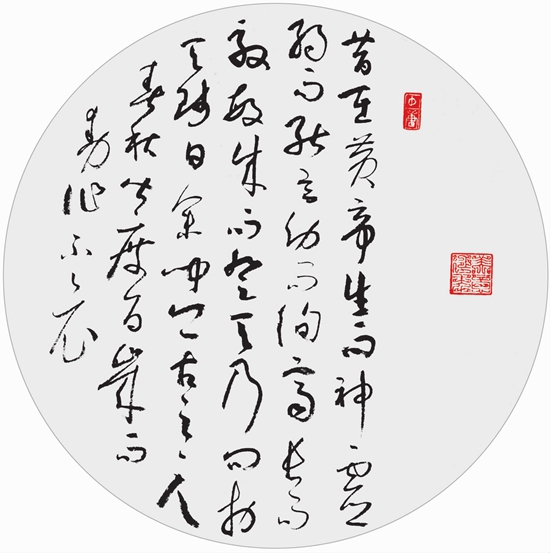 昔在黃帝生而神靈
弱而能言幼而徇齊長而
敦敏成而登天乃問於
天師曰余聞上古之人
春秋皆度百歲而
動作不衰